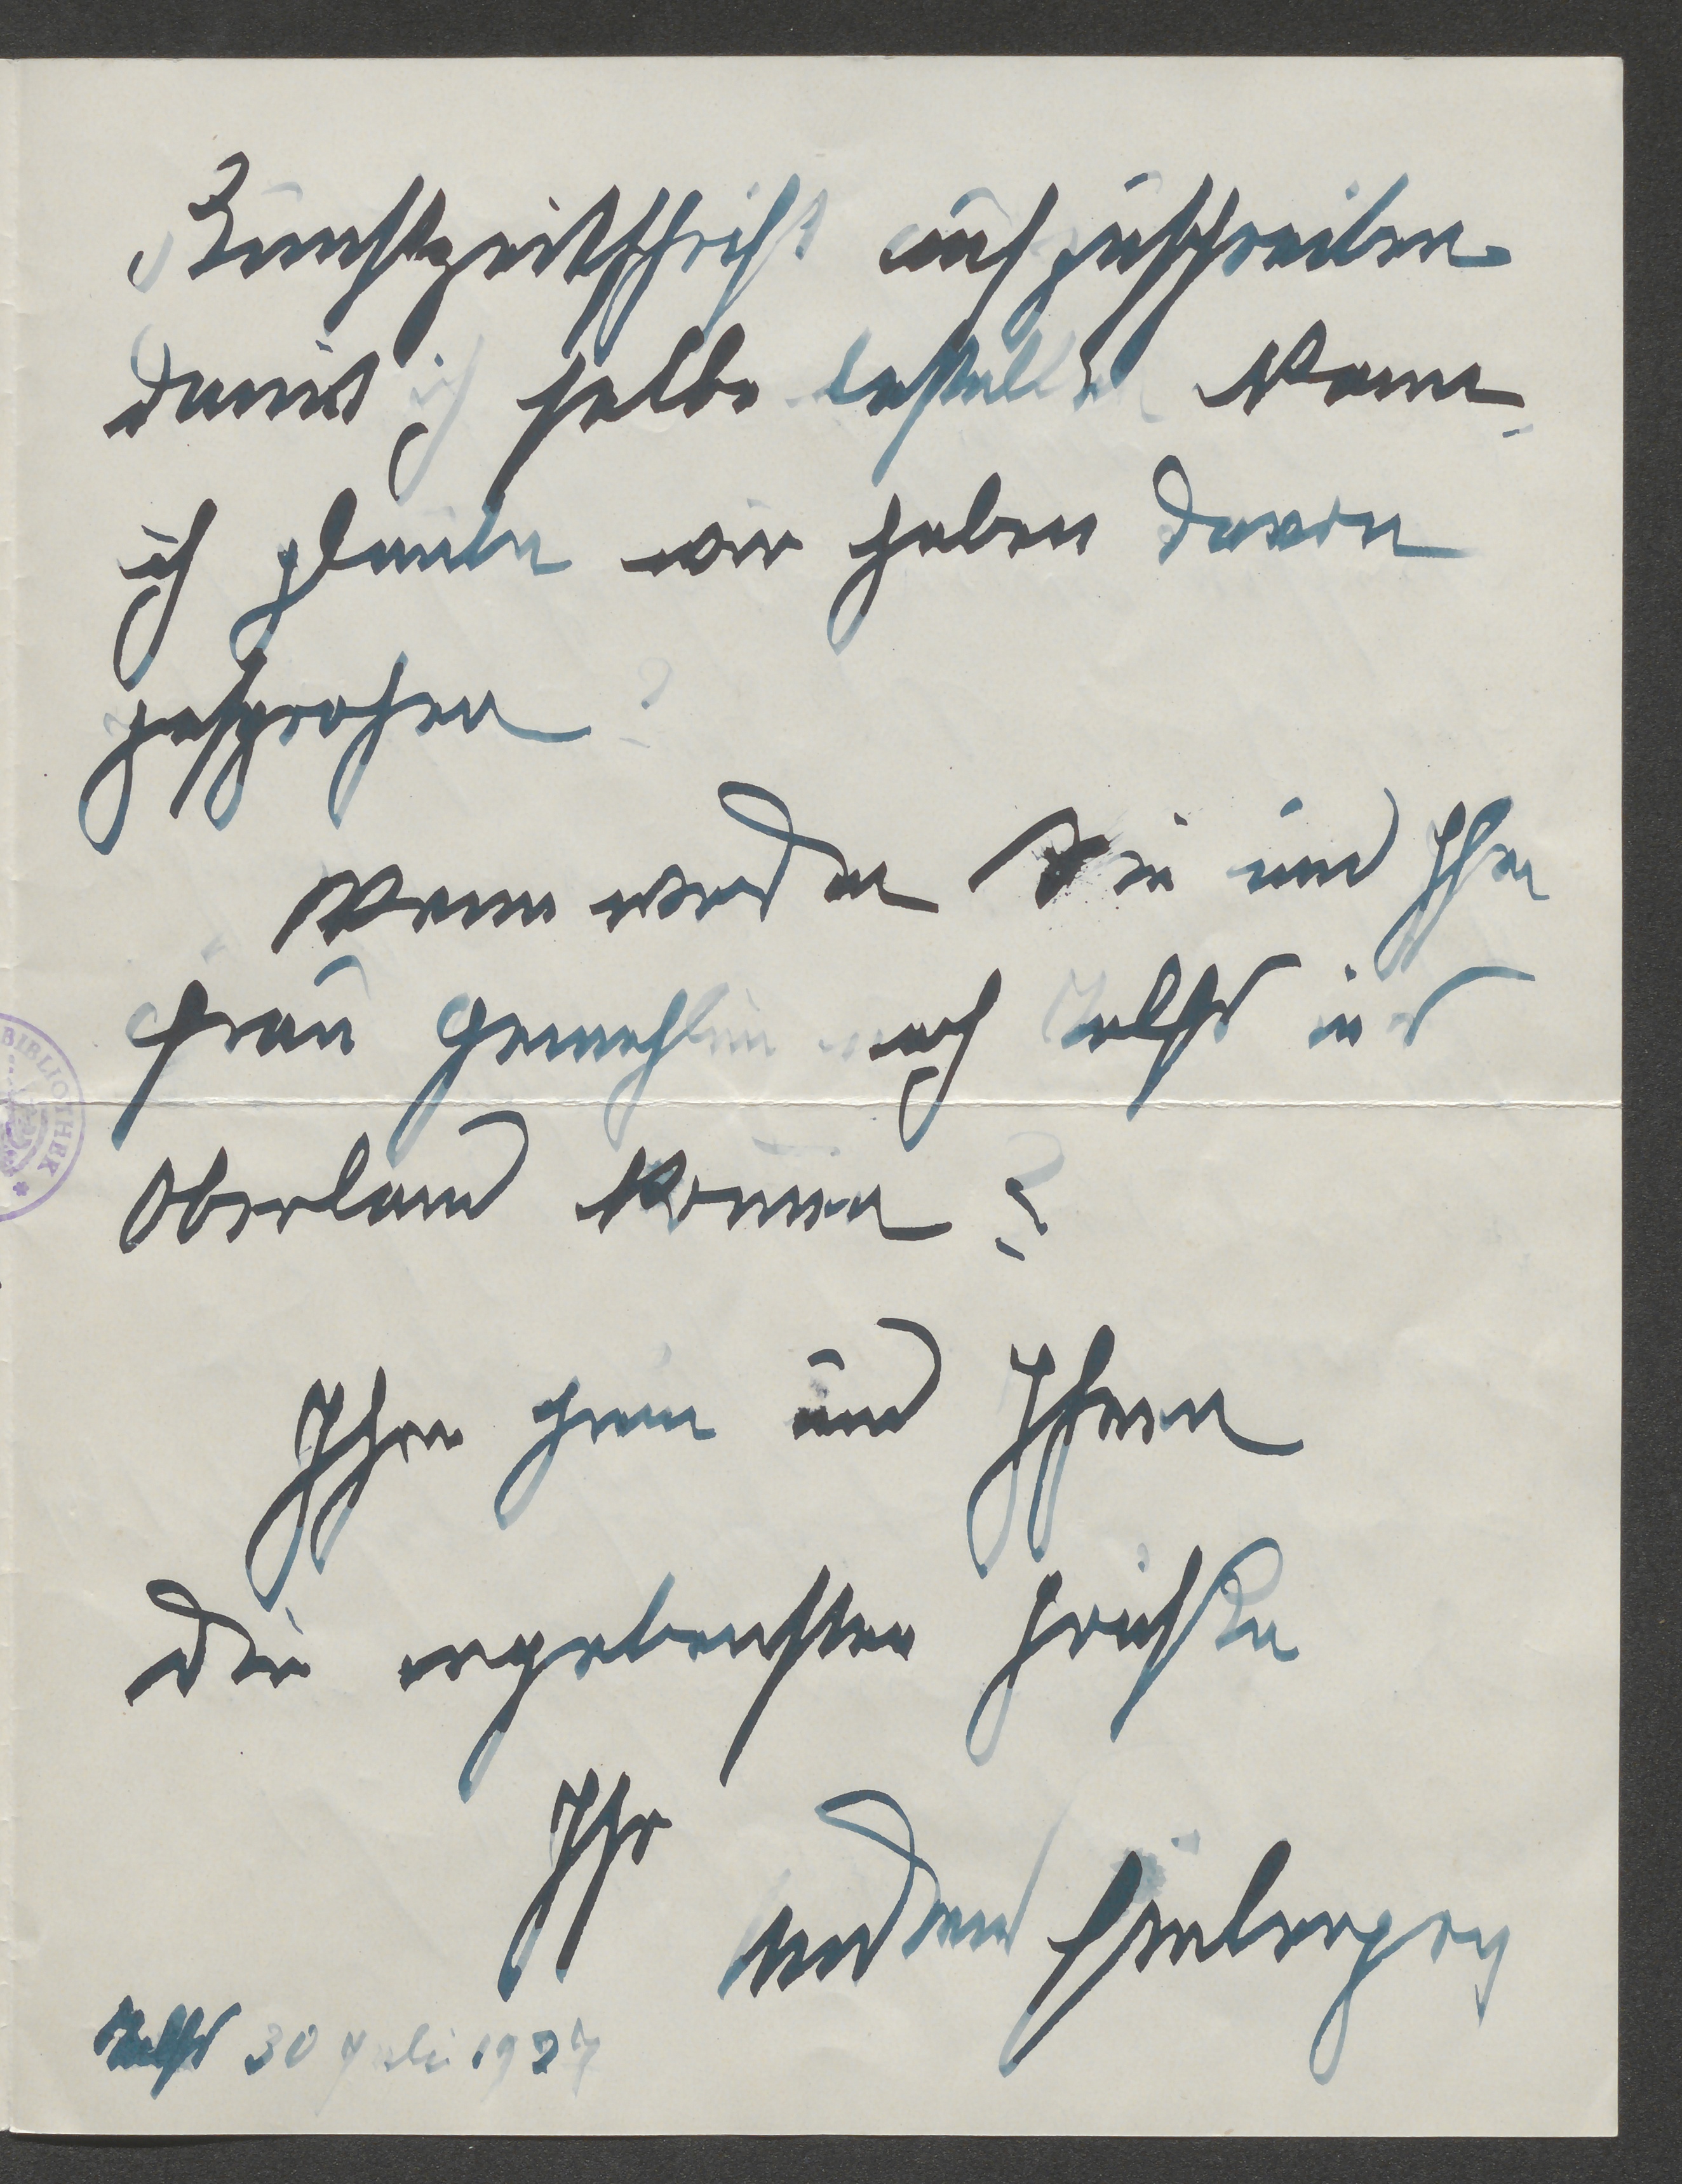 Kunstzeitschrift aufzuschreiben
damit ich selbe bestellen kann.
ich glaube wir haben davon
gesprochen?
Wann werden Sie und Ihre
Frau Gemahlin nach Telfs ins
Oberland kommen?
Ihre und Ihnen
die ergebensten Grüße
Ihr
Andreas Einberger
Telfs 30 Juli 1927
BIBLIOTHEK